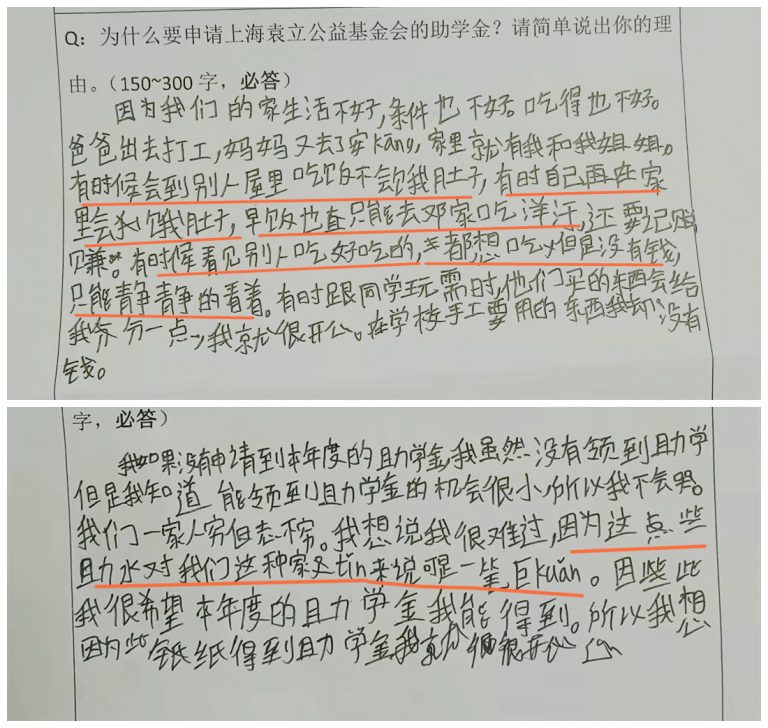 Q：为什么要申请上海袁立公益基金会的助学金？请简单说出你的理
由。（150~300字，必答）
因为我们的家生活不好，条件也不好。吃得也不好。
爸爸出去打工，妈妈又去了安kāng，家里就有我和我姐姐。
有时候会到别人屋里吃饭不会饿我肚子，有时自己再在家
里会饿我肚子，早饭也只能去邓家吃洋汗，还要记账
赚。有时候看见别人吃好吃的，都想吃，但是没有钱，
只能静静的看着。有时跟同学玩需时，他们买的东西会给
我分一点，我就很开心。在学校手工要用的东西我却没有
钱。
字，必答）
我如果没有申请到本年度的助学金，我虽然没有领到助学
但是我知道能领到助学金的机会很小，所以我不会哭。
我们一家人穷但志不穷。我想说我很难过，因为这点些
助水对我们这种家tín来说可是一笔巨kuǎn。因些些
我很希望本年度的助学金我能得到。所以我想
因为些钱纸得到助学金，我就很很开心